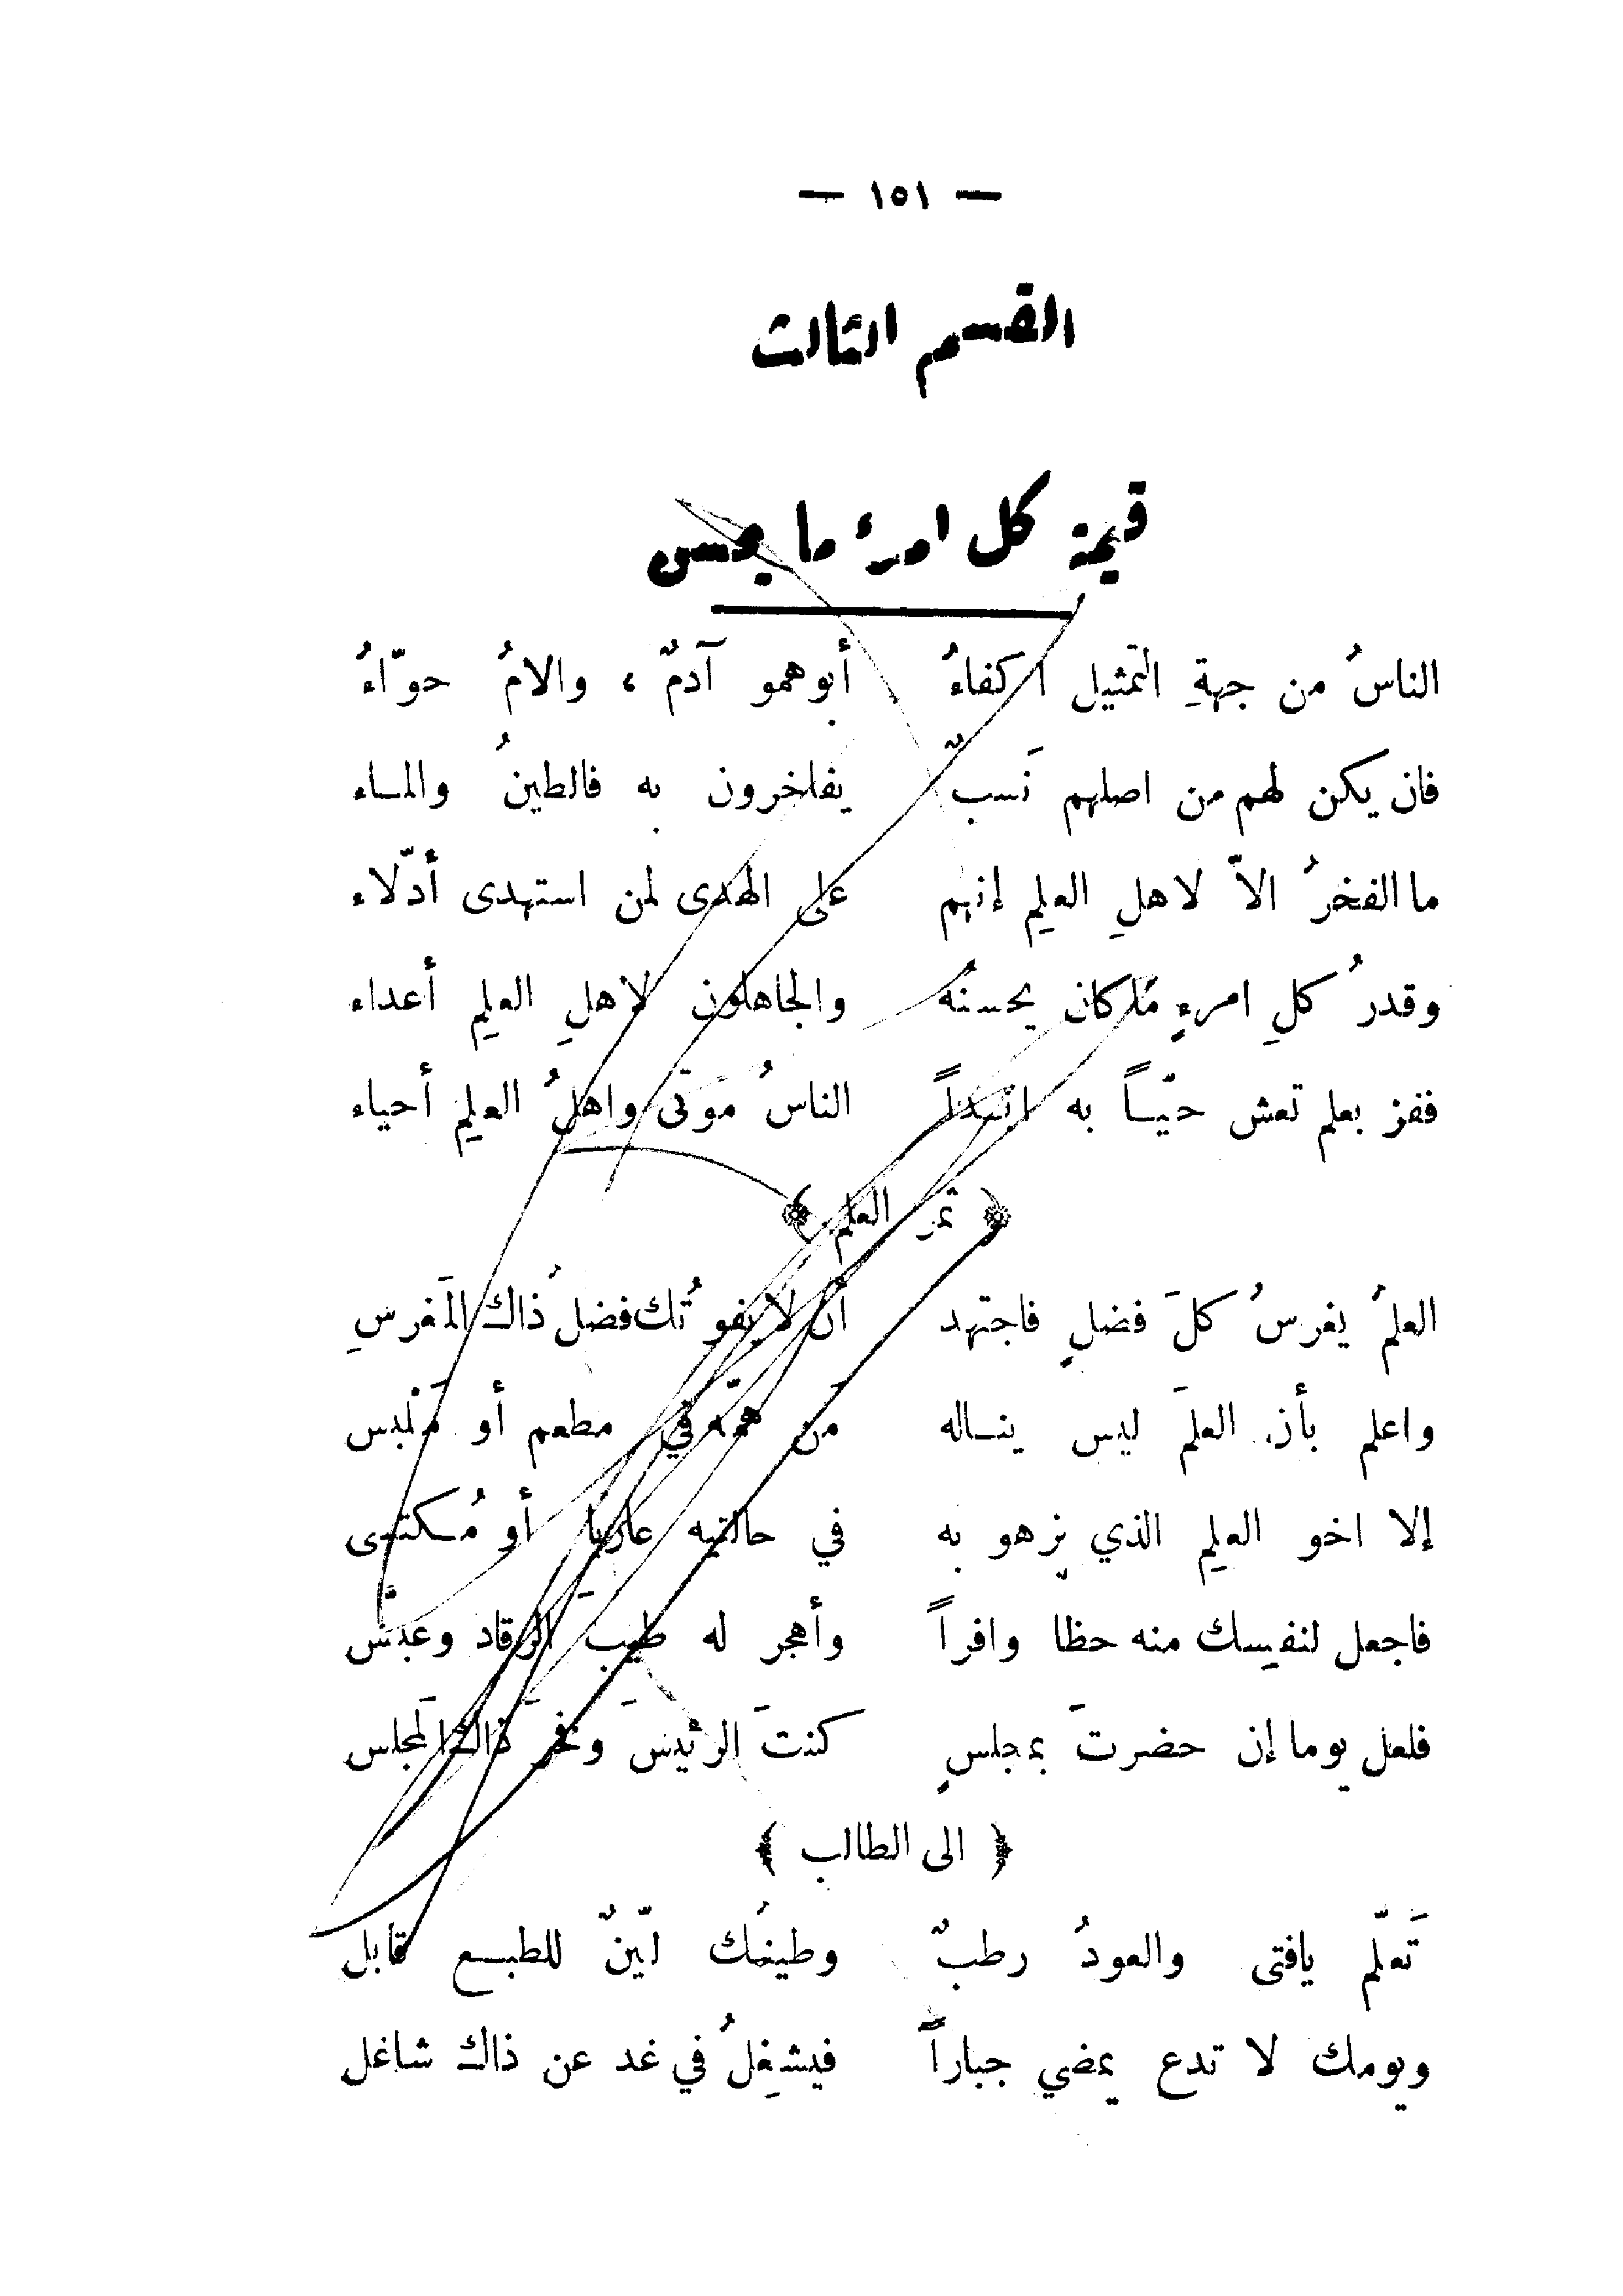 — ١٥١ —
القسم الثالث
قيمة كل امرئ ما يحسن
الناسُ من جهةِ التمثيل اكفاءُ أبوهمو آدمٌ ، والامُ حوّاءُ
فان يكن لهم من اصلهم نَسبٌ يفاخرون به فالطينُ والماء
ما الفخرُ الاّ لاهلِ العلمِ إنهم على الهدى لمن استهدى أدلّاء
وقدرُ كلِ امرءٍ ما كان يحسنُه والجاهلون لاهلِ العلمِ أعداء
ففز بعلم تعش حيّاً به ابداً الناسُ موتى واهلُ العلمِ أحياء
﴿ ثمر العلم ﴾
العلمُ يغرسُ كلَ فضلٍ فاجتهد أن لا يفوتُك فضلُ ذاك المَغرسِ
واعلم بأن العلمَ ليس يناله مَن همّه في مطعم أو مَلبس
إلا اخو العلمِ الذي يزهو به في حالتيه عاريا أو مُكتسى
فاجعل لنفسِك منه حظا وافراً وأهجر له طيبَ الرقاد وعبّس
فلعل يوما إن حضرتَ بمجلسٍ كنتَ الرئيسَ وفخرَ ذاك المَجلس
﴿ الى الطالب ﴾
تَعلّم يافتى والعودُ رطبٌ وطينُك ليّنٌ للطبع قابل
ويومك لا تدع يمضي جباراً فيشغِلُ في غد عن ذاك شاغل